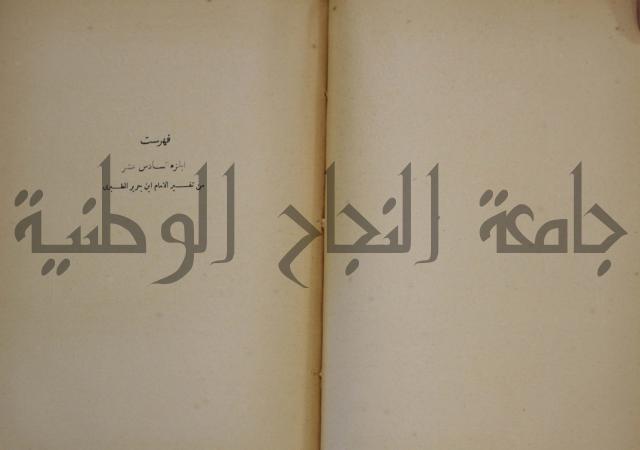 فهرست
الجزء السادس عشر
من تفسير الامام ابن جرير الطبرى
جامعة النجاح الوطنية